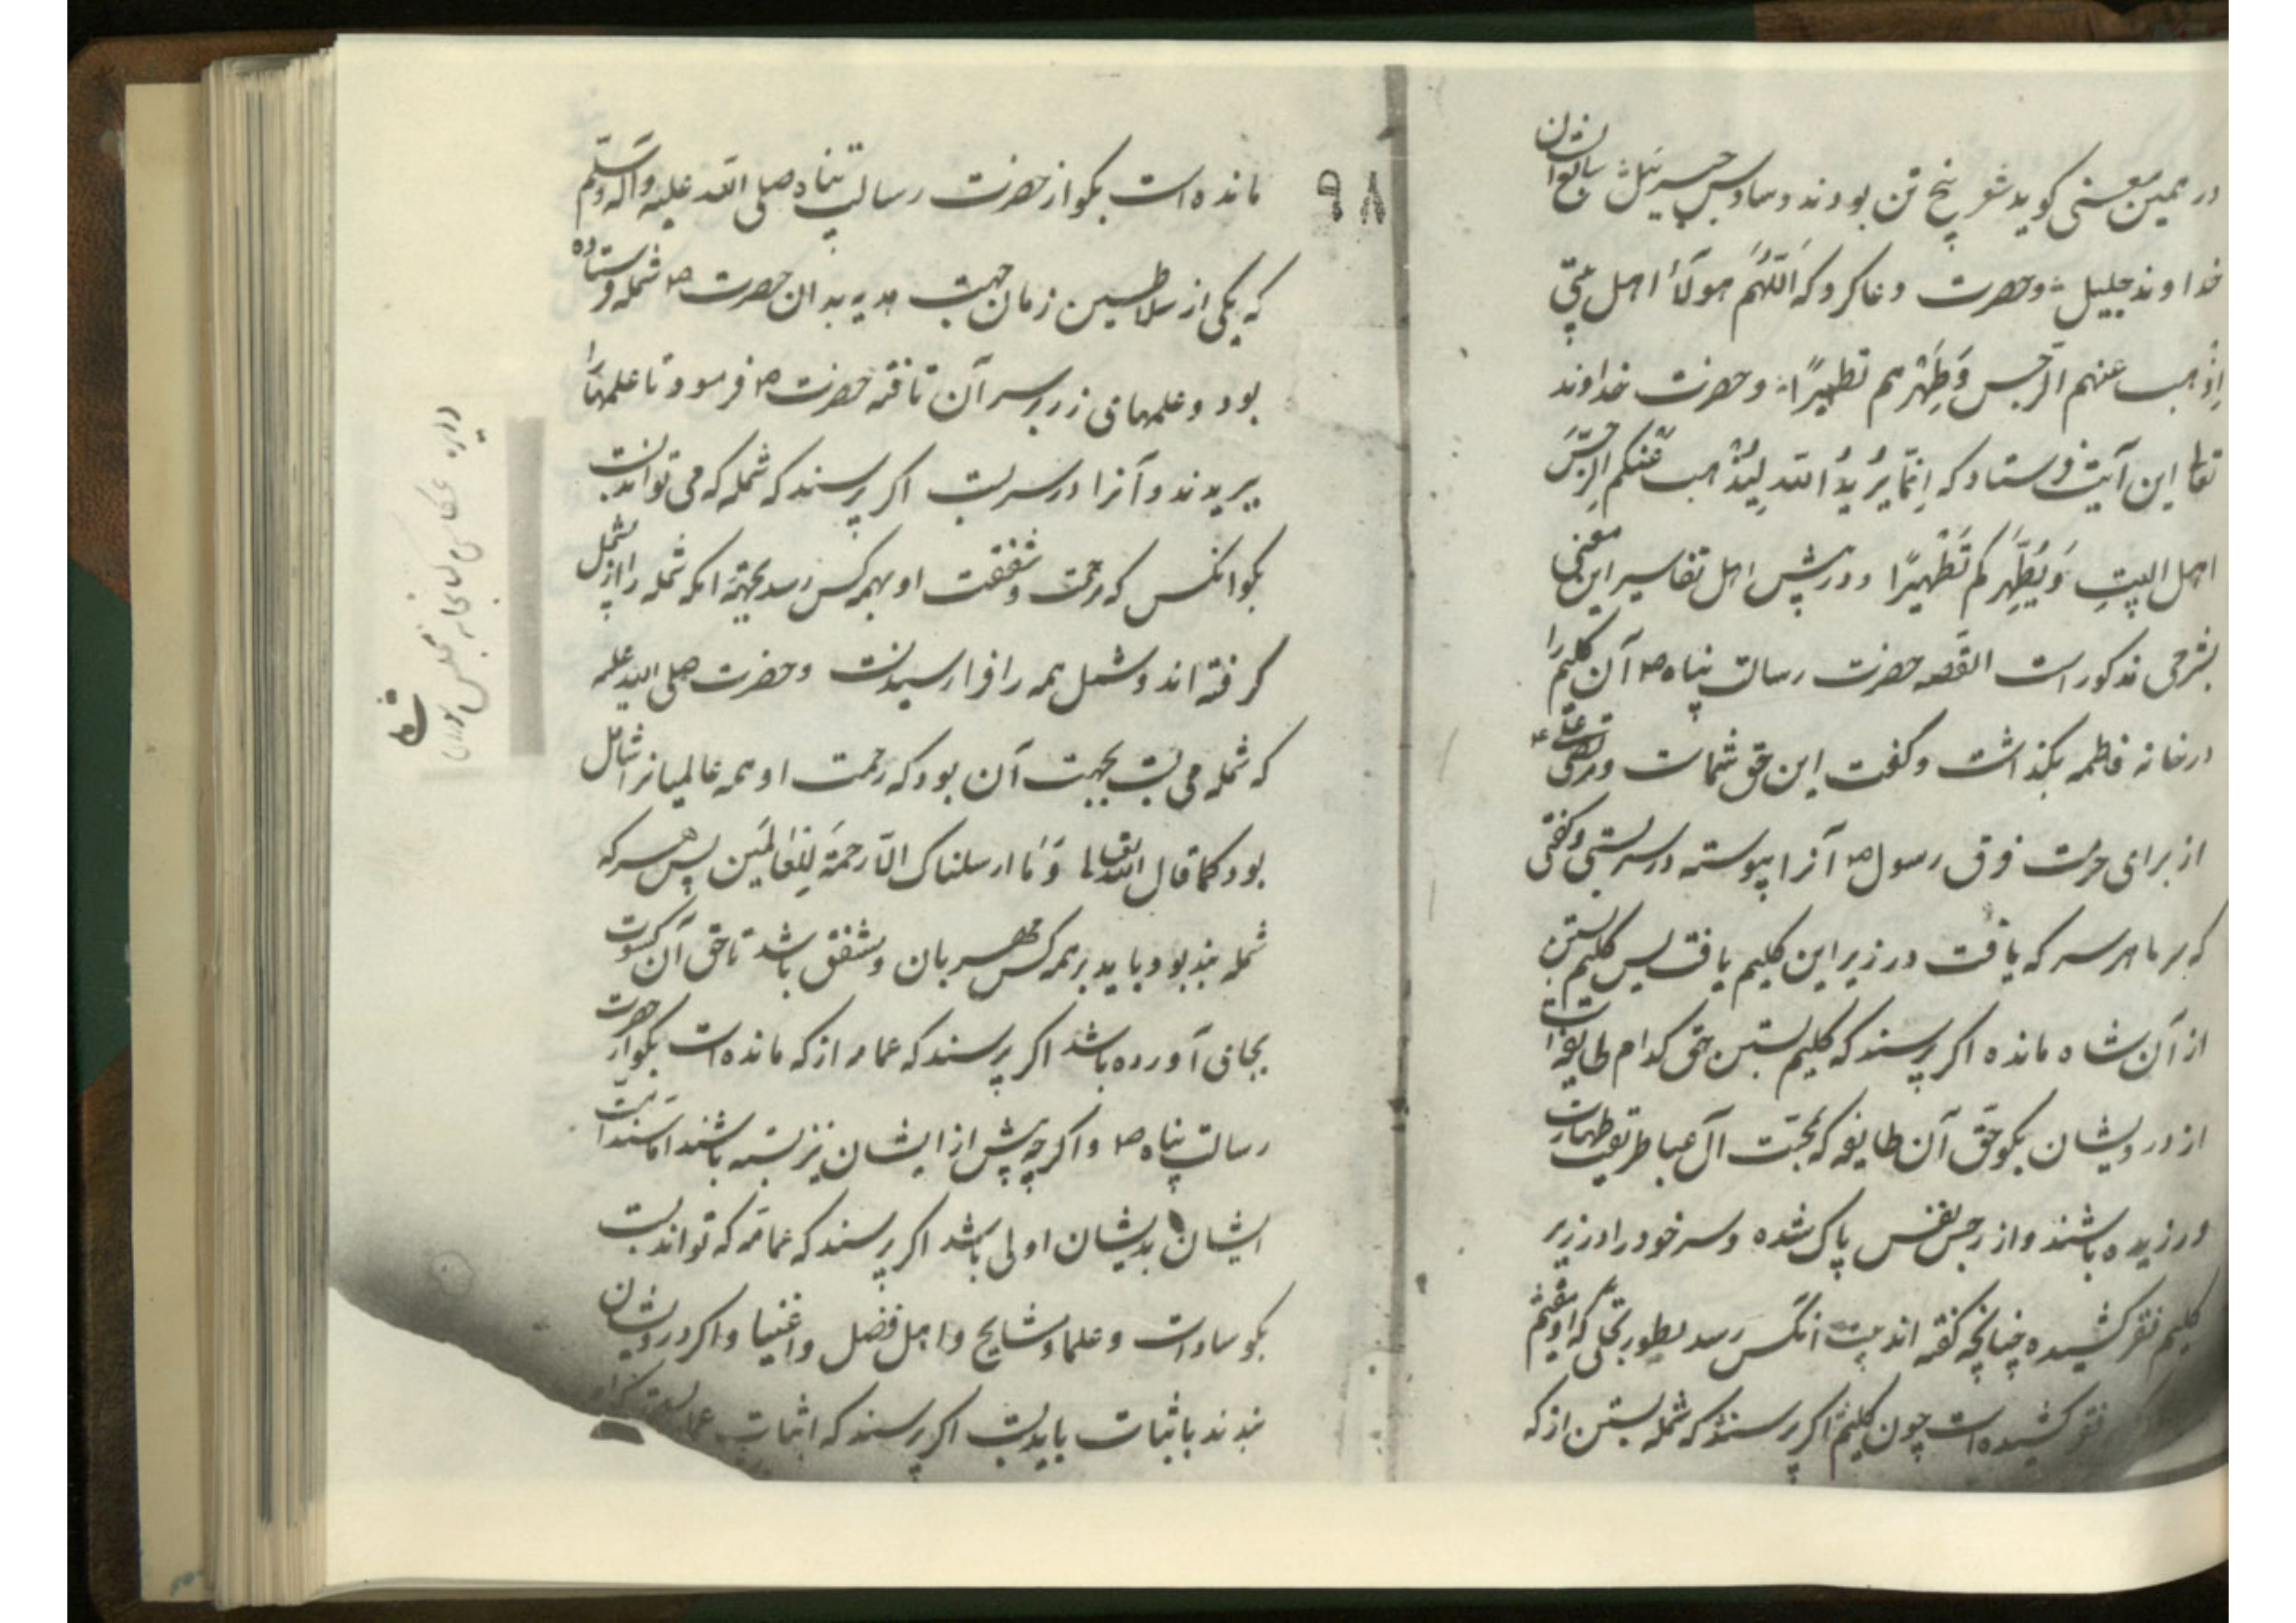 در همین معنی کوید شعر پنج تن بودند و سادس جبرئیل تابع ایشان
خداوند جلیل وحضرت دعا کرد که اَللّهُمَ هولآءُ اهل بیتی
اِذْهب عنهم الرّجس وَطَهّرهم تطهیرًا وحضرت خداوند
تعالی این آیت فرستاد که اِنّمَا یُریدُ اللّه لِیُذْهب عَنکم الرِجسَ
اهل البیتِ وَیُطَهِّرَکم تَطْهیرًا ودر پیش اهل تفاسیر این معنی
بشرحی مذکور است القصه حضرت رسالت پناه ص آن کلیم را
در خانه فاطمه بکذاشت و کفت این حق شماست ومرتضی علی ع
از برای حرمت فوق رسول ص آنرا پیوسته در سر بستی وکفتی
که بر ما هر سر که یافت در زیر این کلیم یافت پس کلیم بستن
از آن شاه مانده اکر پرسند که کلیم بستن حق کدام طایفه است
از درویشان بکو حق آن طایفه که بمحبّت آل عبا طریق طهارت
ورزیده باشند واز رجس نفس پاک شده وسر خود را در زیر
کلیم فقر کشیده چنانچه کفته اند بیت انکس رسد بطور تجلی که او
فقر کشیده است چون کلیم اکر پرسند که شمله بستن از که
۹۸
مانده است بکو از حضرت رسالت پناه صلی اللّه علیه وآله وسلّم
که یکی از سلاطین زمان جهت هدیه بدان حضرت ص شمله فرستاده
بود وعلمهای زر بر سر آن تافته حضرت ص فرمود تا علمها را
ببریدند وآنرا در سر بست اکر پرسند که شمله که می تواند بست
بکو انکس که رحمت وشفقت او بهمه کس رسد بجهة انکه شمله را از شمل
کرفته اند وشمل همه را فرا رسیدنست وحضرت صلی اللّه علیه
که شمله می بست بجهت آن بود که رحمت او همه عالمیانرا شامل
بود کما قال اللّه تعالی وَمَا ارسلناک الّا رَحمَةً لِلعَالَمین پس هر که
شمله بندد باید بر همه کس مهربان ومشفق باشد تا حق آن کسوت
بجای آورده باشد اکر پرسند که عمامه از که مانده است بکو از حضرت
رسالت پناه ص واکر چه پیش از ایشان نیز بسته باشند اما سند است
ایشان بدیشان اولی باشد اکر پرسند که عمامه که تواند بست
بکو سادات وعلما ومشایخ واهل فضل واغنیا واکر درویشان
بندند باثبات باید بست اکر پرسند که اثبات